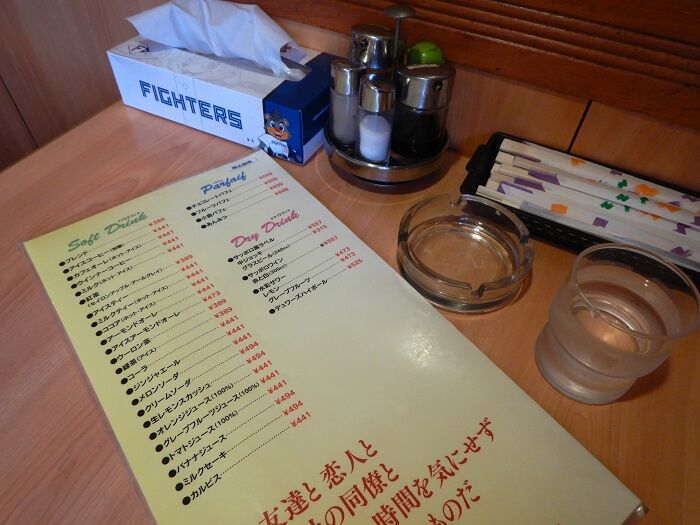 FIGHTERS
Soft Drink
ソフトドリンク
●ブレンド ¥389
●アイスコーヒー(加糖) ¥441
●カフェオーレ(ホット アイス) ¥441
●ウインナーコーヒー ¥441
●ミルク(ホット アイス) ¥441
●紅茶
(セイロンアップル・アールグレイ)
●アイスティー
●ミルクティー(ホット アイス)
●ココア(ホット アイス)
●アーモンドオーレ
●アイスアーモンドオーレ
●ウーロン茶
●緑茶(アイス)
●コーラ
●ジンジャエール
●メロンソーダ
●クリームソーダ
●生レモンスカッシュ
●オレンジジュース(100%)
●グレープフルーツジュース(100%)
●トマトジュース(100%)
●バナナジュース
●ミルクセーキ
●カルピス ¥441
Parfait
パフェ
●チョコレートパフェ
●フルーツパフェ
●小倉パフェ
●あんみつ
Dry Drink
ドライドリンク
●サッポロ黒ラベル
中ジョッキ ¥557
グラスビール ¥315
●サッポロワイン
赤と白
●水彩サワー
レモン ¥473
グレープフルーツ ¥473
●デュワーズハイボール ¥525
友達と 恋人と
の同僚と
時間を気にせず
ものだ